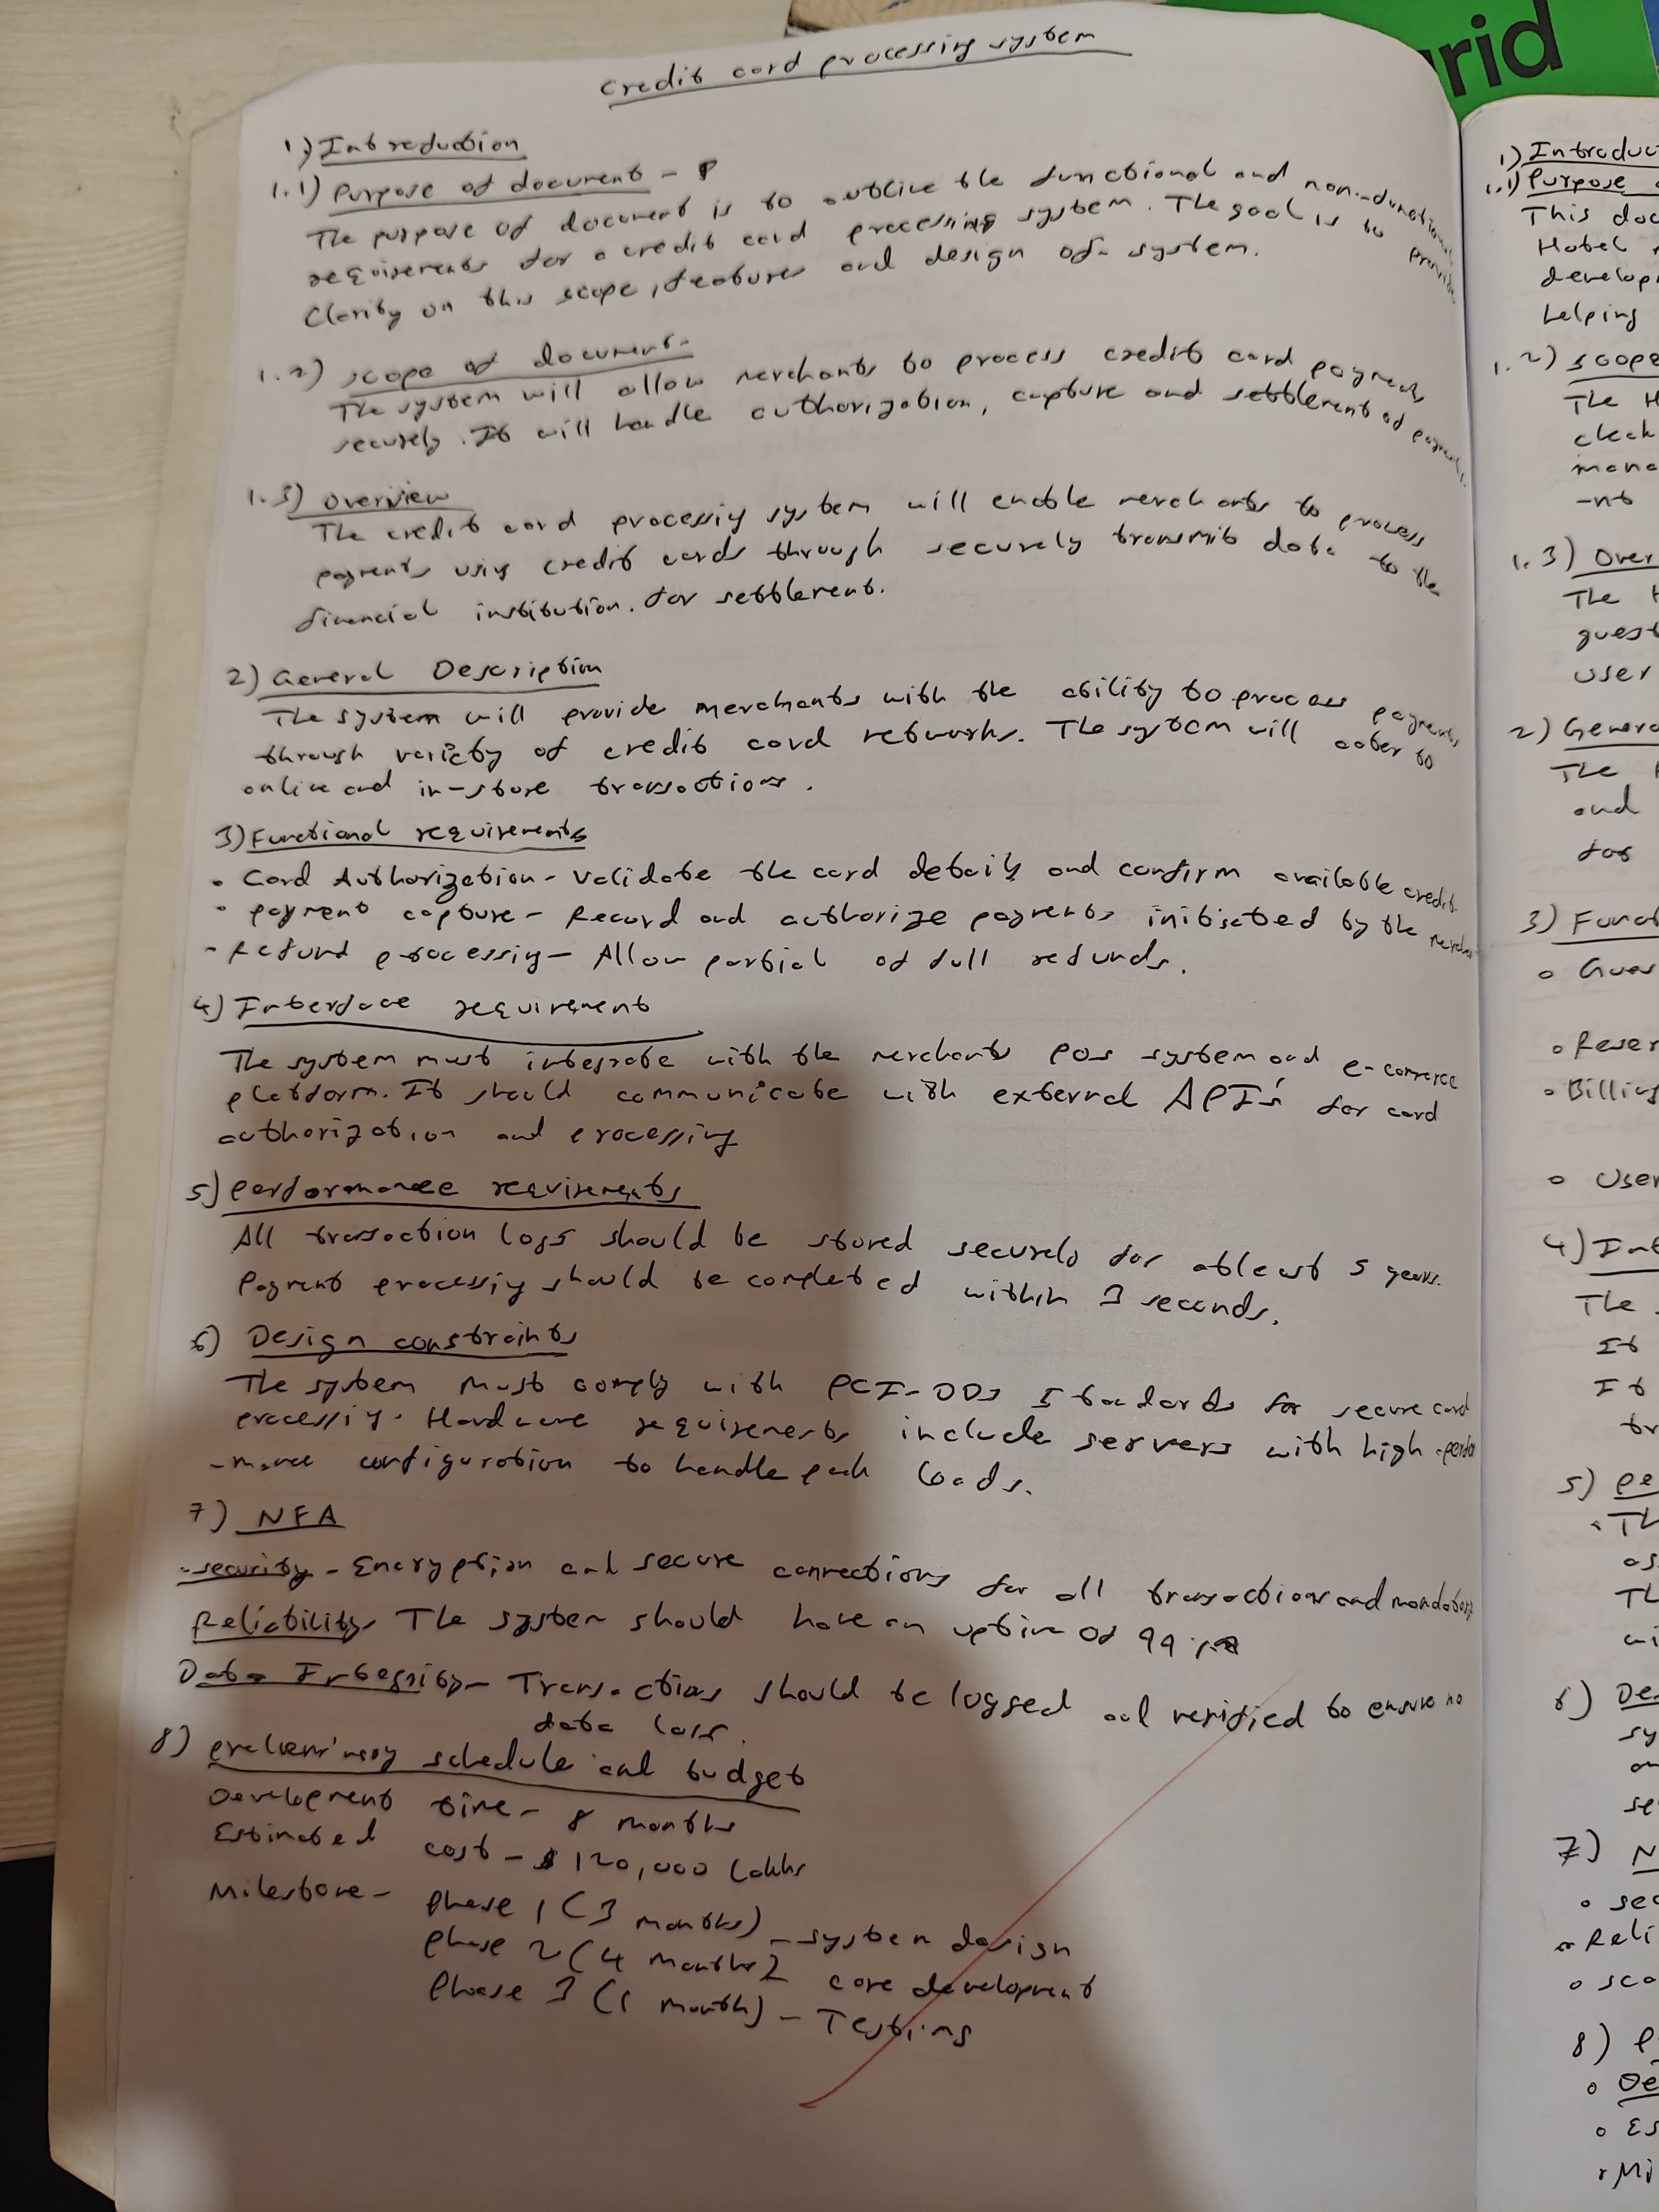 rid
Credit card processing system
1) Introduction
1.1) Purpose of document - P
The purpose of document is to outline the functional and non-functional
requirements for a credit card processing system. The goal is to provide
Clarity on this scope, features and design of system.
1.2) scope of document-
The system will allow merchants to process credit card payments
securely. It will handle authorization, capture and settlement of payments.
1.3) Overview
The credit card processing system will enable merchants to process
payments using credit cards through securely transmit data to the
financial institution. for settlement.
2) General Description
The system will provide merchants with the ability to process payments
through variety of credit card networks. The system will cater to
online and in-store transactions.
3) Functional requirements
• Card Authorization - Validate the card details and confirm available credit.
• payment capture - Record and authorize payments initiated by the merchant
- Refund processing - Allow partial of full refunds.
4) Interface requirement
The system must integrate with the merchants POS system and e-commerce
platform. It should communicate with external API's for card
authorization and processing
5) performance requirements
All transaction logs should be stored securely for atleast 5 years.
Payment processing should be completed within 3 seconds.
6) Design constraints
The system must comply with PCI-DDS Standards for secure card
processing. Hardware requirements include servers with high-perfor
-mance configuration to handle peak loads.
7) NFA
-security - Encryption and secure connections for all transactions and mandatory
Reliability - The system should have an uptime of 99 %
Data Integrity - Transactions should be logged and verified to ensure no
data loss.
8) preliminary schedule and budget
Development time - 8 months
Estimated cost - $ 120,000 Lakhs
Milestone - Phase 1 (3 months) - system design
Phase 2 (4 months) core development
Phase 3 (1 month) - Testing
1) Introduc
1.1) Purpose
This doc
Hotel
develop
helping
1.2) scope
The H
check
mana
-nt
1.3) Over
The H
guest
user
2) Genera
The
and
for
3) Funct
o Gues
o Reser
o Billing
o User
4) Int
The
It
It
tr
5) pe
• Th
as
Th
wi
6) De
sy
an
se
7) N
o sec
o Reli
o sca
8) P
o De
o Es
• Mi